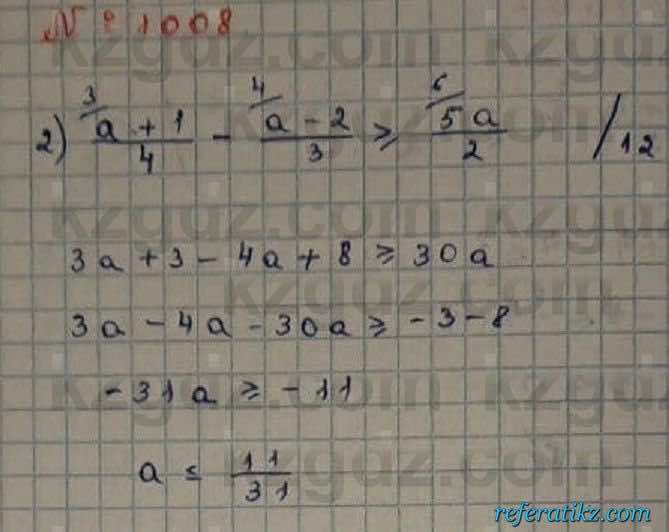 № 1008
2) ³/ (a + 1)/4 - ⁴/ (a - 2)/3 ≥ ⁶/ 5a/2 / 12
3a + 3 - 4a + 8 ≥ 30a
3a - 4a - 30a ≥ -3 - 8
-31a ≥ -11
a ≤ 11/31
referatikz.com